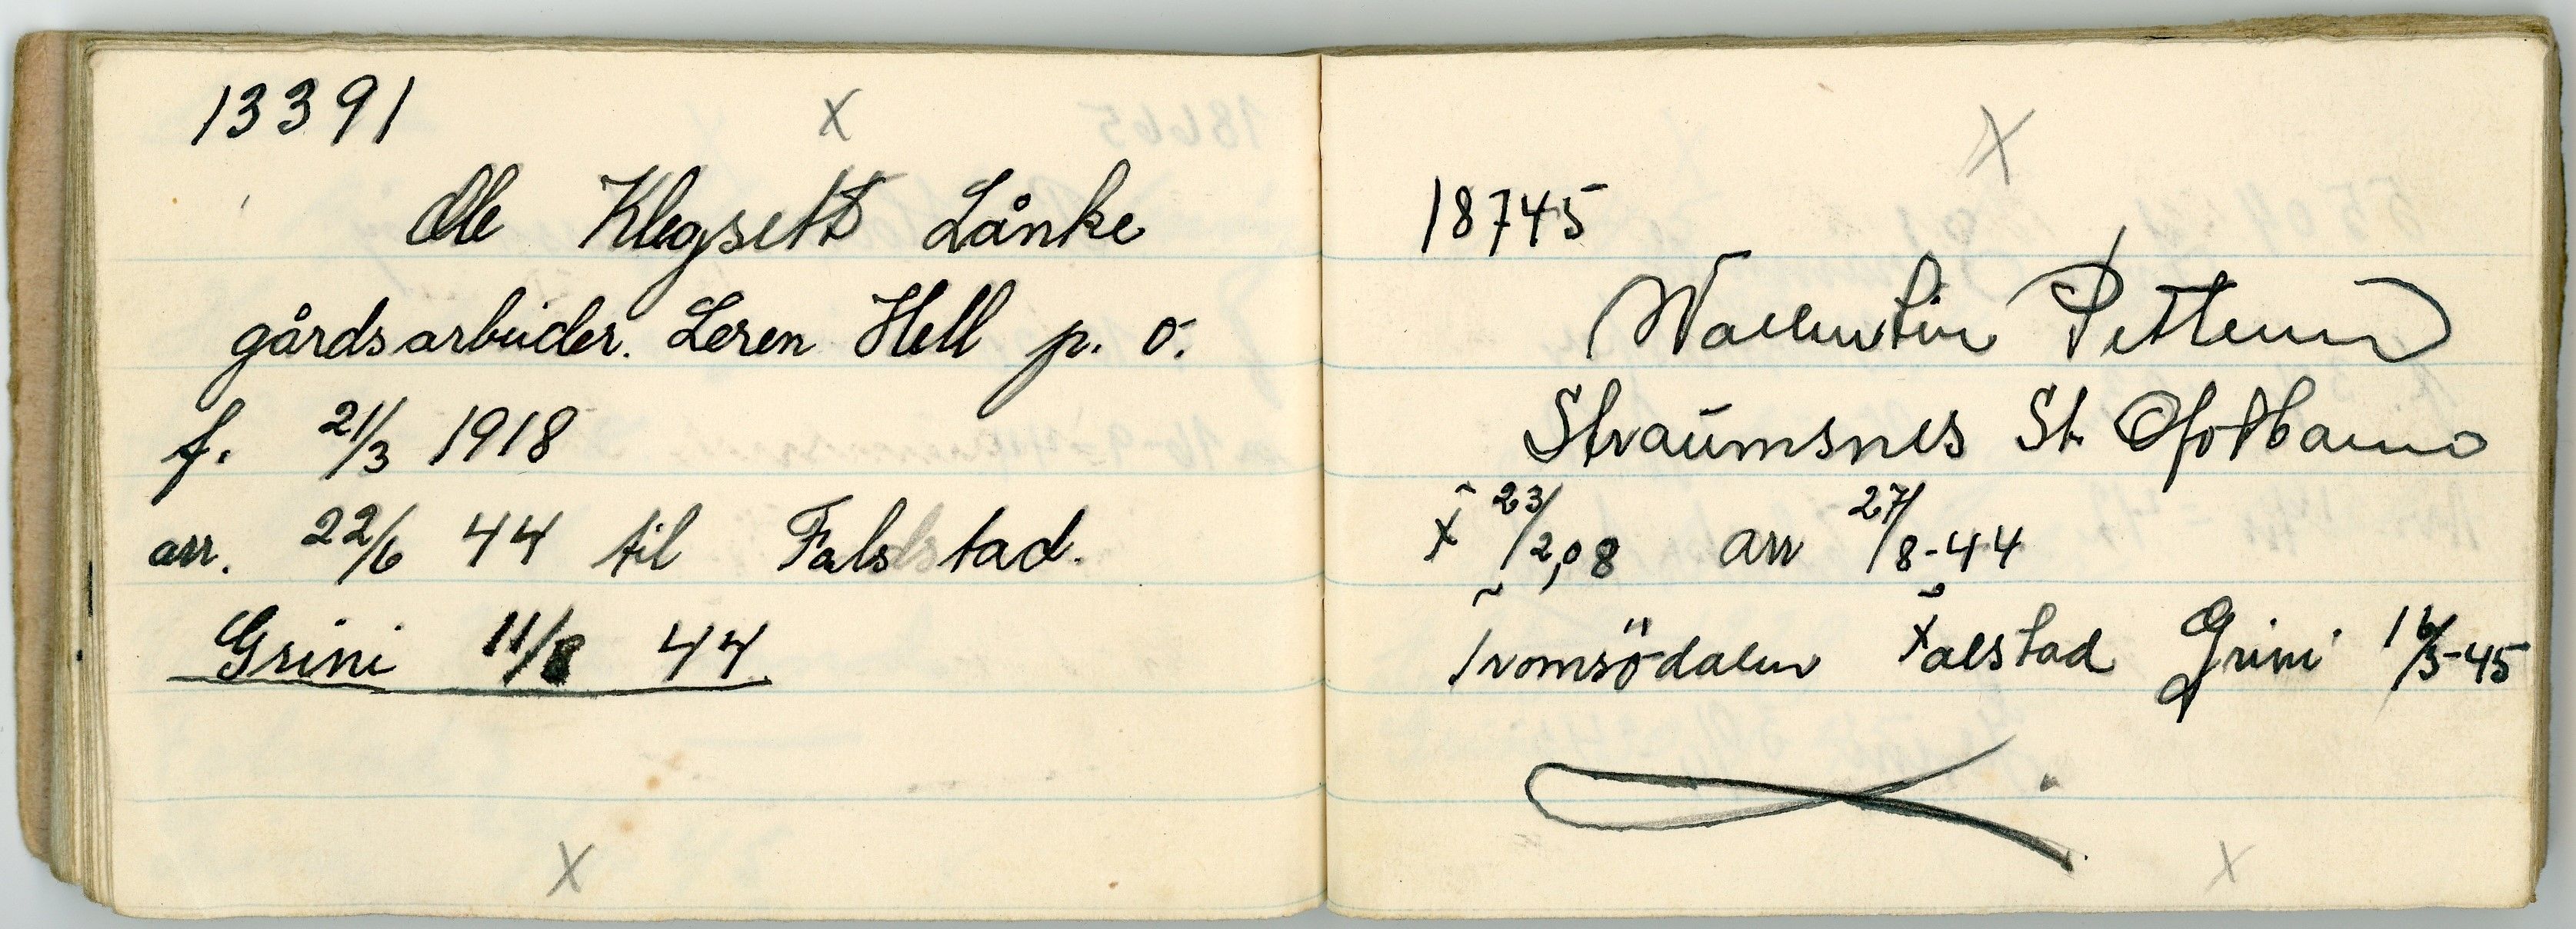 13391
x
Ole Klegsett Lånke
gårdsarbeider. Leren Hell p. o.
f. 21/3 1918
arr. 22/6 44 til Falsstad.
Grini 11/8 44
x
x
18745
Wallentin Pettersen
Straumsnes St. Ofotbanen
f 23/2,08 arr 27/8-44
Tromsödalen Falstad Grini 16/3-45
x